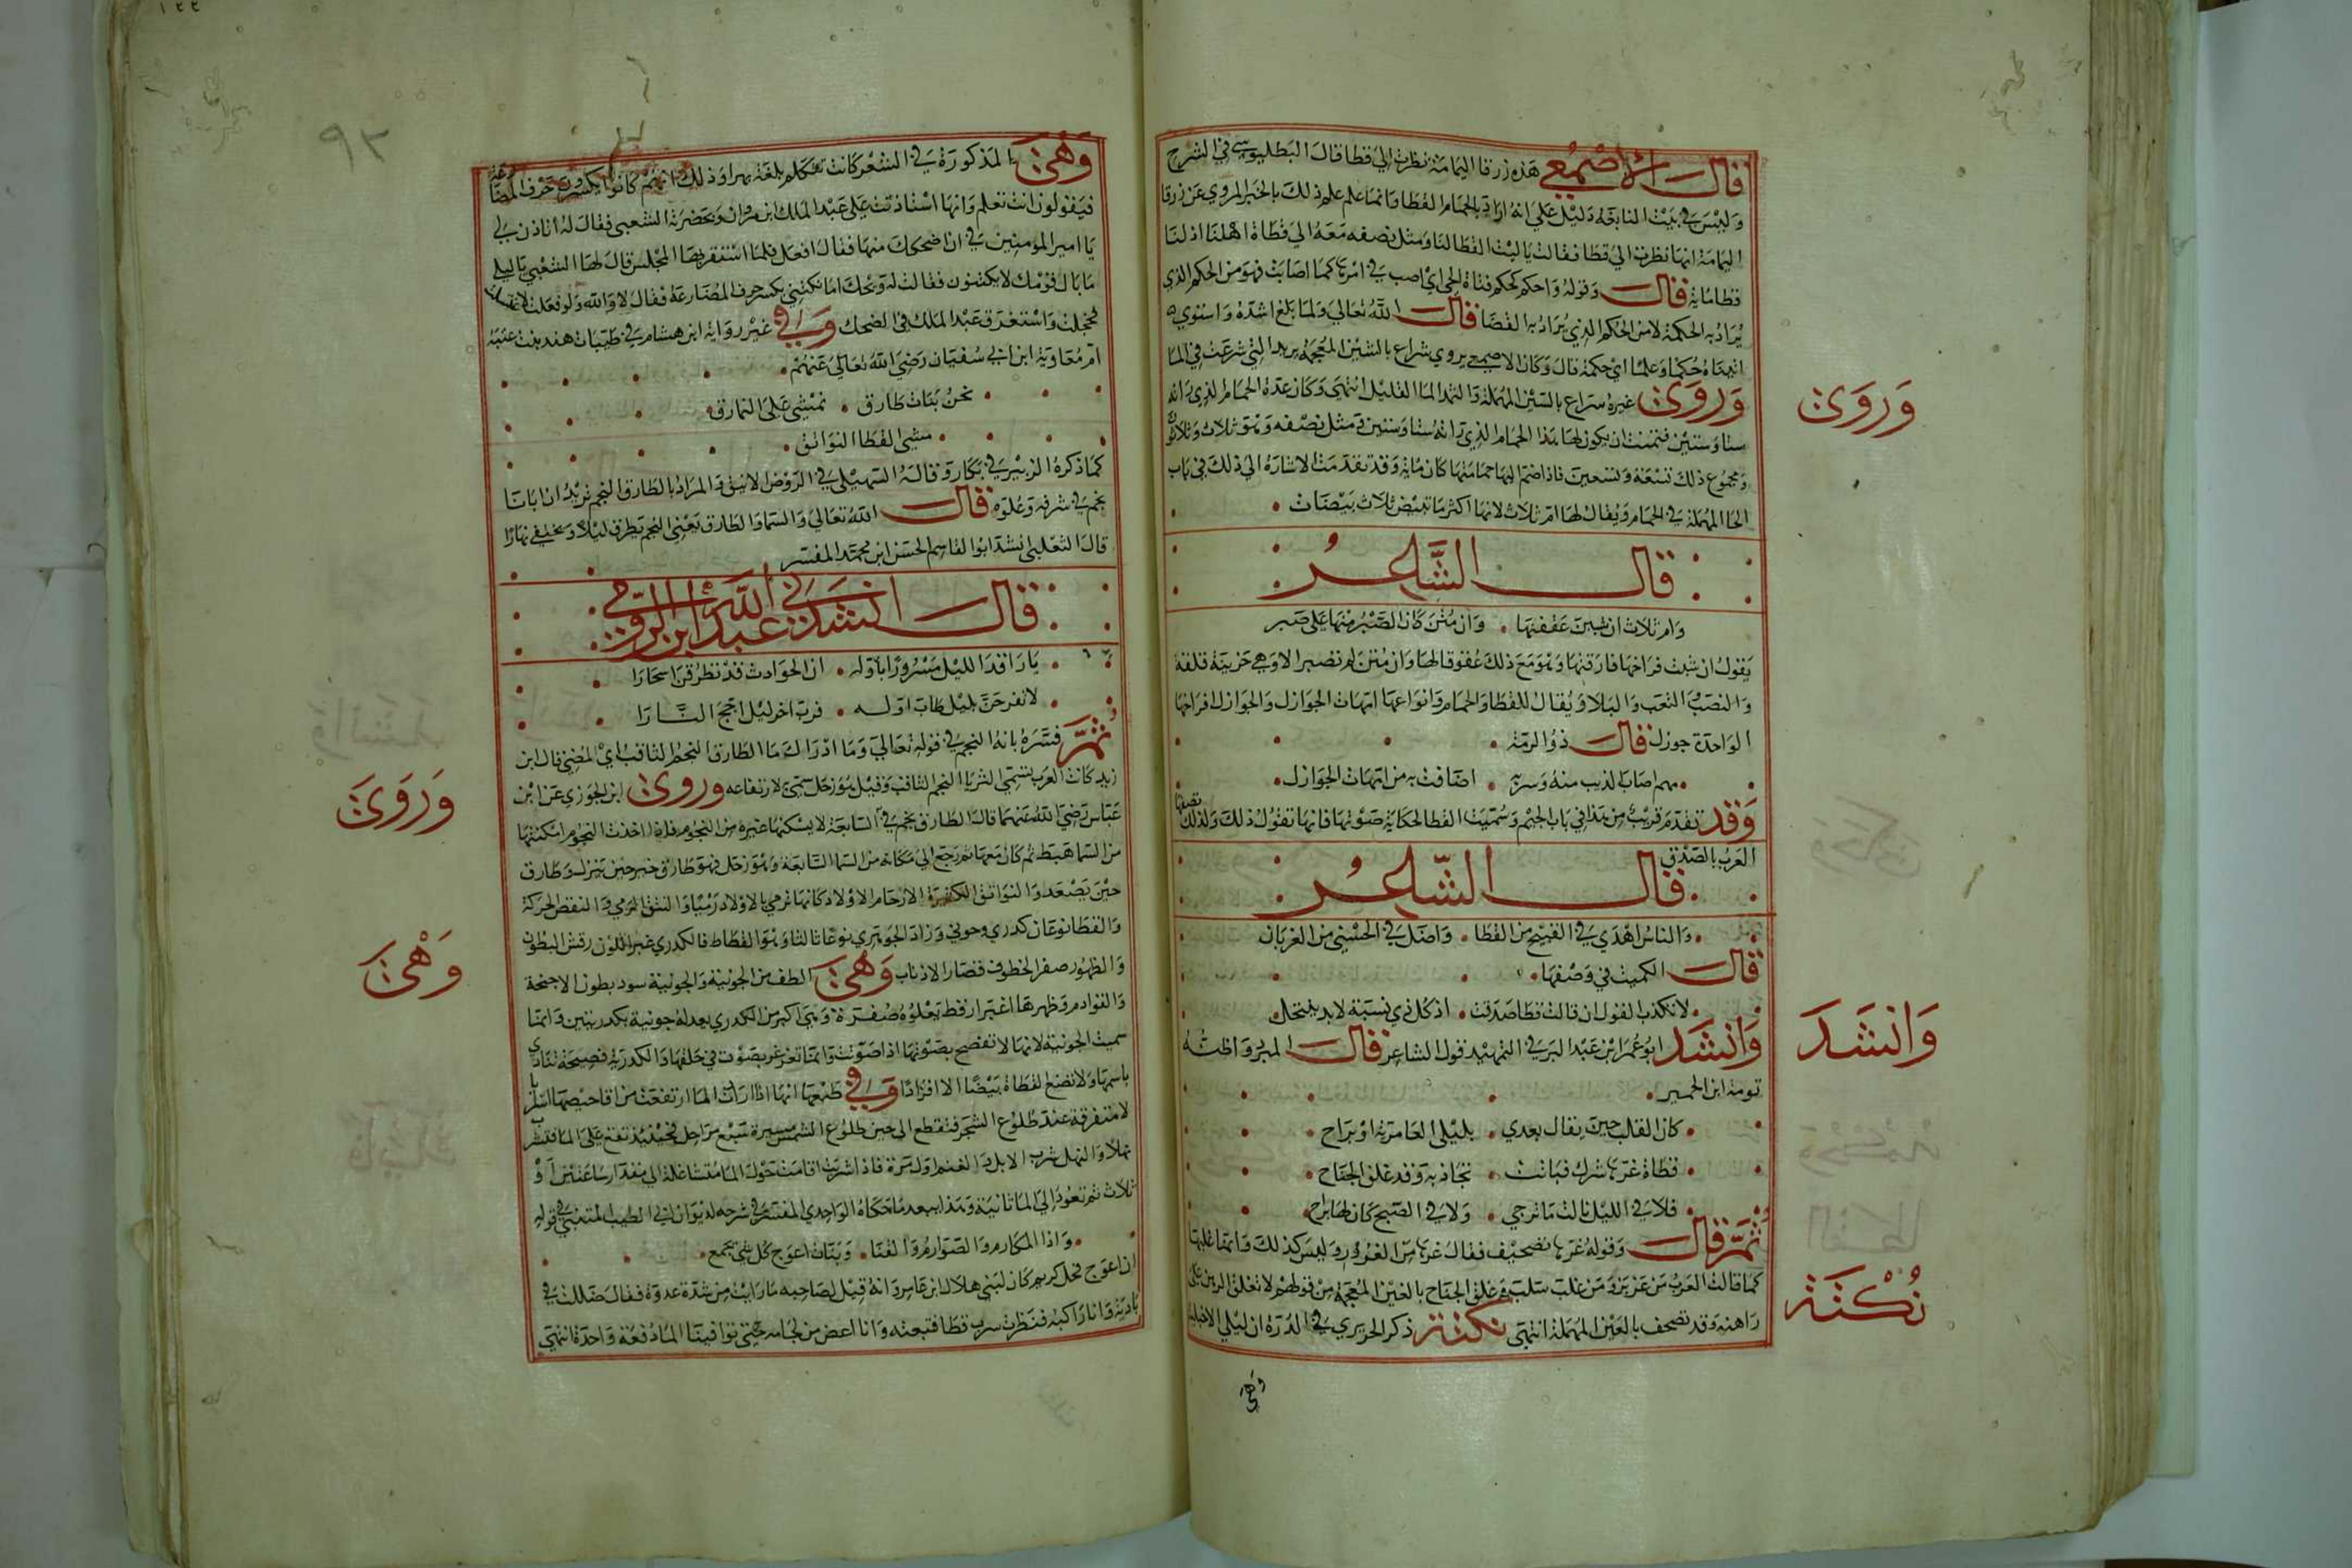 قال الاصمعي هذه زرقا اليمامة نظرت الى قطا قال البطليوسي في الشرح
وليس في بيت النابغة دليل على انه اراد بالحمام القطا وانما علم علم ذلك بالخبر المروي عن زرقا
اليمامة انها نظرت الى قطا فقالت ياليت القطا لنا ومثل نصفه معه الى قطاة اهلنا اذ لنا
قطا مايه قال وقوله واحكم كحكم فتاة الحي اي اصب في امرك كما اصابت فهو من الحكم الذي
يراد به الحكمة لا من الحكم الذي يراد به القضا قال الله تعالى ولما بلغ اشده واستوى
اتيناه حكما وعلما اي حكمة قال وكان الاصمعي يروي شراع بالشين المعجمة يريد التي شرعت في الما
وروى غيره سراع بالسين المهملة والثمد الما القليل انتهى وكان عدة الحمام الذي راته
ستا وستين فتمنت ان يكون لها هذا الحمام الذي رأته ستا وستين ومثل نصفه وهو ثلاث وثلاثون
ومجموع ذلك تسعة وتسعين فاذا ضم اليها حمامتها كان مائة وقد تقدمت الاشارة الى ذلك في باب
الحا المهملة في الحمام ويقال لها ام ثلاث لانها اكثر ما تبيض ثلاث بيضات
قال الشاعر
وام ثلاث ان شببن عققنها وان متن كان الصبر منها على صبر
يقول ان شبت فراخها فارقتها وهو مع ذلك عقوقا لها وان متن لم تصبر الا وهي حزينة قلقة
والنصب التعب والبلا ويقال للقطا والحمام وانواعها امهات الجوازل والجوازل فراخها
الواحدة جوزل قال ذو الرمة
اضافت به من امهات الجوازل
وقد تقدم قريب من هذا في باب الجيم وسميت القطا لحكاية صوتها فانها تقول ذلك ولذلك تصفها
العرب بالصدق
قال الشاعر
والناس اهدى في القبيح من القطا واضل في الحسنى من الغربان
قال الكميت في وصفها
لا تكذب القول ان قالت قطا صدقت اذ كل ذي نسبة لابد ينتحل
وانشد ابو عمر ابن عبد البر في التمهيد قول الشاعر قال المبرد واظنه
توبة ابن الحمير
كان القلب حين يقال بعدي بليلى العامرية او براح
قطاة غرها شرك فباتت تجاذبه وقد غلق الجناح
فلا في الليل نالت ما ترجي ولا في الصبح كان لها براح
ثم قال وقوله غرها تصحيف فقال غرها من الغرور وليس كذلك وانما غلبها
كما قالت العرب من عز بز ومن غلب سلب وغلق الجناح بالغين المعجمة من قولهم لا تغلق الرهن على
راهنه وقد تصحف بالعين المهملة انتهى نكتة ذكر الحريري في الدرة ان ليلى الاخيلية
وهي
وروى
وانشد
نكتة
٩٢
وهى المذكورة في الشعر كانت تتكلم بلغة بهرا وذلك انهم كانوا يكسرون حرف المضارعة
فيقولون انت تعلم وانها استاذنت على عبد الملك ابن مروان وبحضرته الشعبي فقال له اتاذن لي
يا امير المومنين في ان اضحكك منها فقال افعل فلما استقر بها المجلس قال لها الشعبي يا ليلى
ما بال قومك لا يكتنون فقالت له ويحك اما نكتني بكسر حرف المضارعة فقال لا والله ولو فعلت لاغتسلت
فخجلت واستغرق عبد الملك في الضحك وفي غير رواية ابن هشام في طيبات هند بنت عتبة
ام معاوية ابن ابي سفيان رضي الله تعالى عنهم
نحن بنات طارق نمشي على النمارق
مشي القطا النواتق
كما ذكره الزبير في بكار وقاله السهيلي في الروض الانيق والمراد بالطارق النجم تريد ان ابانا
نجم في شرفه وعلوه قال الله تعالى والسما والطارق يعني النجم يطرق ليلا ويخفى نهارا
قال الثعلبي انشد ابو القاسم الحسن ابن محمد المفسر
قال انشدني عبد الله ابن الرومي
يا راقد الليل مسرورا باوله ان الحوادث قد تطرقن اسحارا
لا تفرحن بليل طاب اوله فرب اخر ليل اجج النارا
ثم فسره بانه النجم في قوله تعالى وما ادراك ما الطارق النجم الثاقب اي المضي قال ابن
زيد كانت العرب تسمي الثريا النجم الثاقب وقيل هو زحل سمي لارتفاعه وروى ابن الجوزي عن ابن
عباس رضي الله عنهما قال الطارق نجم في السابعة لا يسكنها غيره من النجوم فاذا اخذت النجوم امكنتها
من السما هبط ثم كان معها ثم رجع الى مكانه من السما السابعة وهو زحل فهو طارق حين ينزل وطارق
حين يصعد والنواتق الكثيرة الارحام الاولاد كانها ترمي بالاولاد رميا والنتق الرمي والنقض الحركة
والقطا نوعان كدري وجوني وزاد الجوهري نوعا ثالثا وهو القطاط فالكدري غبر اللون رقش البطون
والظهور صفر الحلوق قصار الاذناب وهى الطف من الجونية والجونية سود بطون الاجنحة
والقوادم وظهرها اغبر ارقط تعلوه صفرة وهي اكبر من الكدري يعدل جونية بكدريتين وانما
سميت الجونية لانها لا تفصح بصوتها اذا صوتت وانما تغرغر بصوت في حلقها والكدرية فصيحة تنادي
باسمها ولا تضع القطاة بيضا الا افرادا وفي طبعها انها اذا ارادت الما ارتفعت من افاحيصها اسرابا
لا متفرقة عند طلوع الفجر فتقطع الى حين طلوع الشمس مسيرة سبع مراحل فحينئذ تقع على الما فتشرب
نهلا والنهل شرب الابل والغنم اول مرة فاذا شربت اقامت حول الما متشاغلة الى مقدار ساعتين او
ثلاث ثم تعود الى الما ثانية وهذا بعد ما حكاه الواحدي المفسر في شرحه لديوان ابي الطيب المتنبي في قوله
واذا المكارم والصوارم والقنا وبنات اعوج كل شي يجمع
ان اعوج فحل كريم كان لبني هلال ابن عامر وانه قيل لصاحبه ما رايت من شدة عدوه فقال ضللت في
بادية وانا راكبه فنظرت سرب قطا فتبعته وانا اعض من لجامه حتى توافينا الما دفعة واحدة انتهى
وروى
وهى